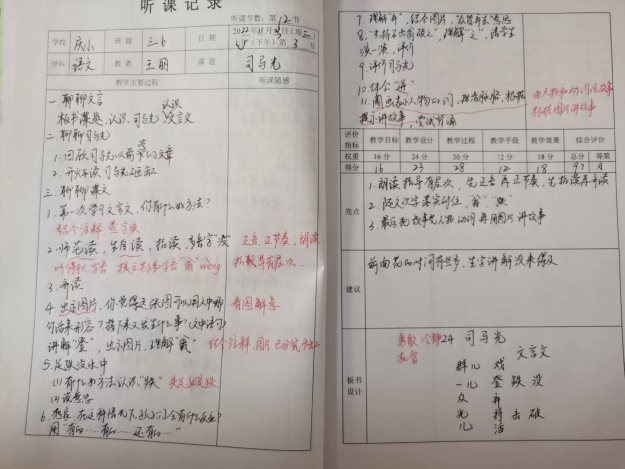 听课记录
听课节数：第12节
学校 庆小 班级 三.6 日期 2022年11月 日（周三）
（下午）第3节
学科 语文 教者 王丽 课题 司马光
教学主要过程 听课随感
一 聊聊文言
板书课题，认识司马光 认识文言文
二 聊聊司马光
1. 回顾司马光以前学的文章
2. 开火车读司马光
三 聊聊课文
1. 第一次学习文言文，你有什么好方法？
结合注释 查字典
2. 师范读，生自读，指读，多音字“没” 正音、正节奏，朗读
瓮 wèng 指教导有层次
3. 齐读
4. 出示图片，你觉得这张图可以用文中哪 看图解意
句话来形容？接下来又发生什么事？（文中语句）
讲解“登”，出示图片，理解“瓮” 结合注释 图片
5. 足跌没水中
(1) 有什么好方法认识“跌”
(2) 说意思
6. 想象：在这种情况下孩子们会有什么反应？
用“有的……有的……还有的……”
7. 理解“弃”，结合图片，众皆弃去 意思
8. “光持石击瓮破之”，理解“之”，请学生
演一演，评价
9. 评价司马光
10. 体会“迸”
11. 圈画表示人物的词，根据
提示讲故事，尝试背诵
由人物和动词说故事
根据图片讲故事
评价指标 教学目标 教学设计 教学过程 教学手段 教学效果 综合评价
权重 16分 24分 30分 12分 18分 总分 等第
得分 16 23 28 12 18 97 A
亮点
1. 朗读指导有层次，先正音再正节奏，先指读再齐读
2. 随文识字落实到位，“瓮”“跌”
3. 最后把故事先人物动词再用图片讲故事
建议
前面花的时间有些多，生字讲解没来得及
板书设计
勇敢 冷静 24 司马光
机智 文言文
群儿 戏
一儿 登 跌 没
众 弃
光 持 击 破
儿 活